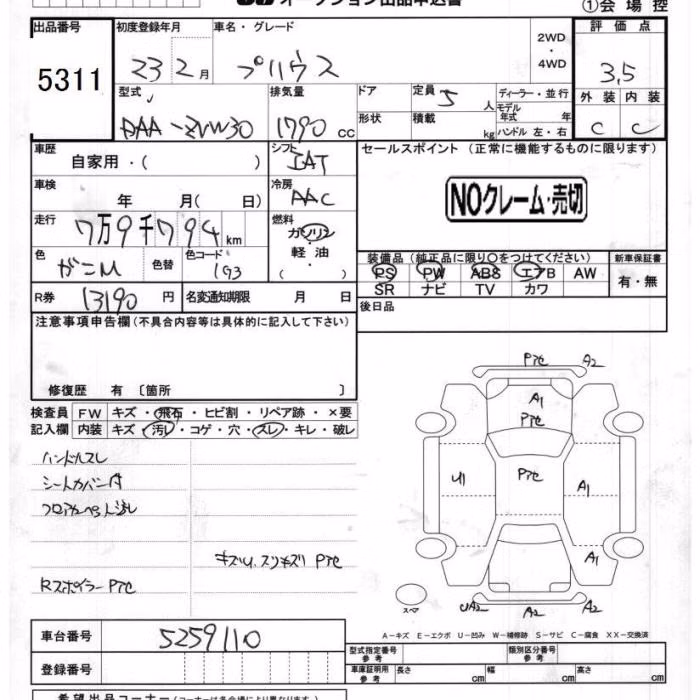 オークション出品申込書
①会場控
出品番号 初度登録年月 車名・グレード 2WD・4WD 評価点
5311 23 2月 プリウス 3,5
型式 排気量 ドア 定員 5人 ディーラー・並行 外装 内装
DAA-ZVW30 1790 CC 形状 積載 kg モデル年式 年 ハンドル 左・右 C C
車歴 自家用・( ) シフト IAT セールスポイント (正常に機能するものに限ります)
車検 年 月( 日) 冷房 AAC NOクレーム・売切
走行 7万9千794km 燃料 ガソリン・軽油・( )
色 ガンM 色替 色コード 1G3
装備品(純正品に限り○をつけてください) 新車保証書
PS PW ABS エアB AW 有・無
SR ナビ TV カワ
R券 13190円 名変通知期限 月 日 後日品
注意事項申告欄(不具合内容等は具体的に記入して下さい)
修復歴 有 〔箇所 〕
検査員 FW キズ・飛石・ヒビ割・リペア跡・×要
記入欄 内装 キズ・汚レ・コゲ・穴・スレ・キレ・破レ
ハンドルスレ
シートカバー付
フロアカーペット汚レ
キズU、スリキズリ Pアセ
Rスポイラー Pアセ
Pアセ A2
A1
Pアセ
U1 Pアセ A1
A1
スペア UA2 A2 A2
A-キズ E-エクボ U-凹み W-補修跡 S-サビ C-腐食 XX-交換済
車台番号 5259110
型式指定番号 参考 類別区分番号 参考
登録番号 車庫証明用 参考 長さ cm 幅 cm 高さ cm
希望出品コーナー(コーナーは各会場により異なります)